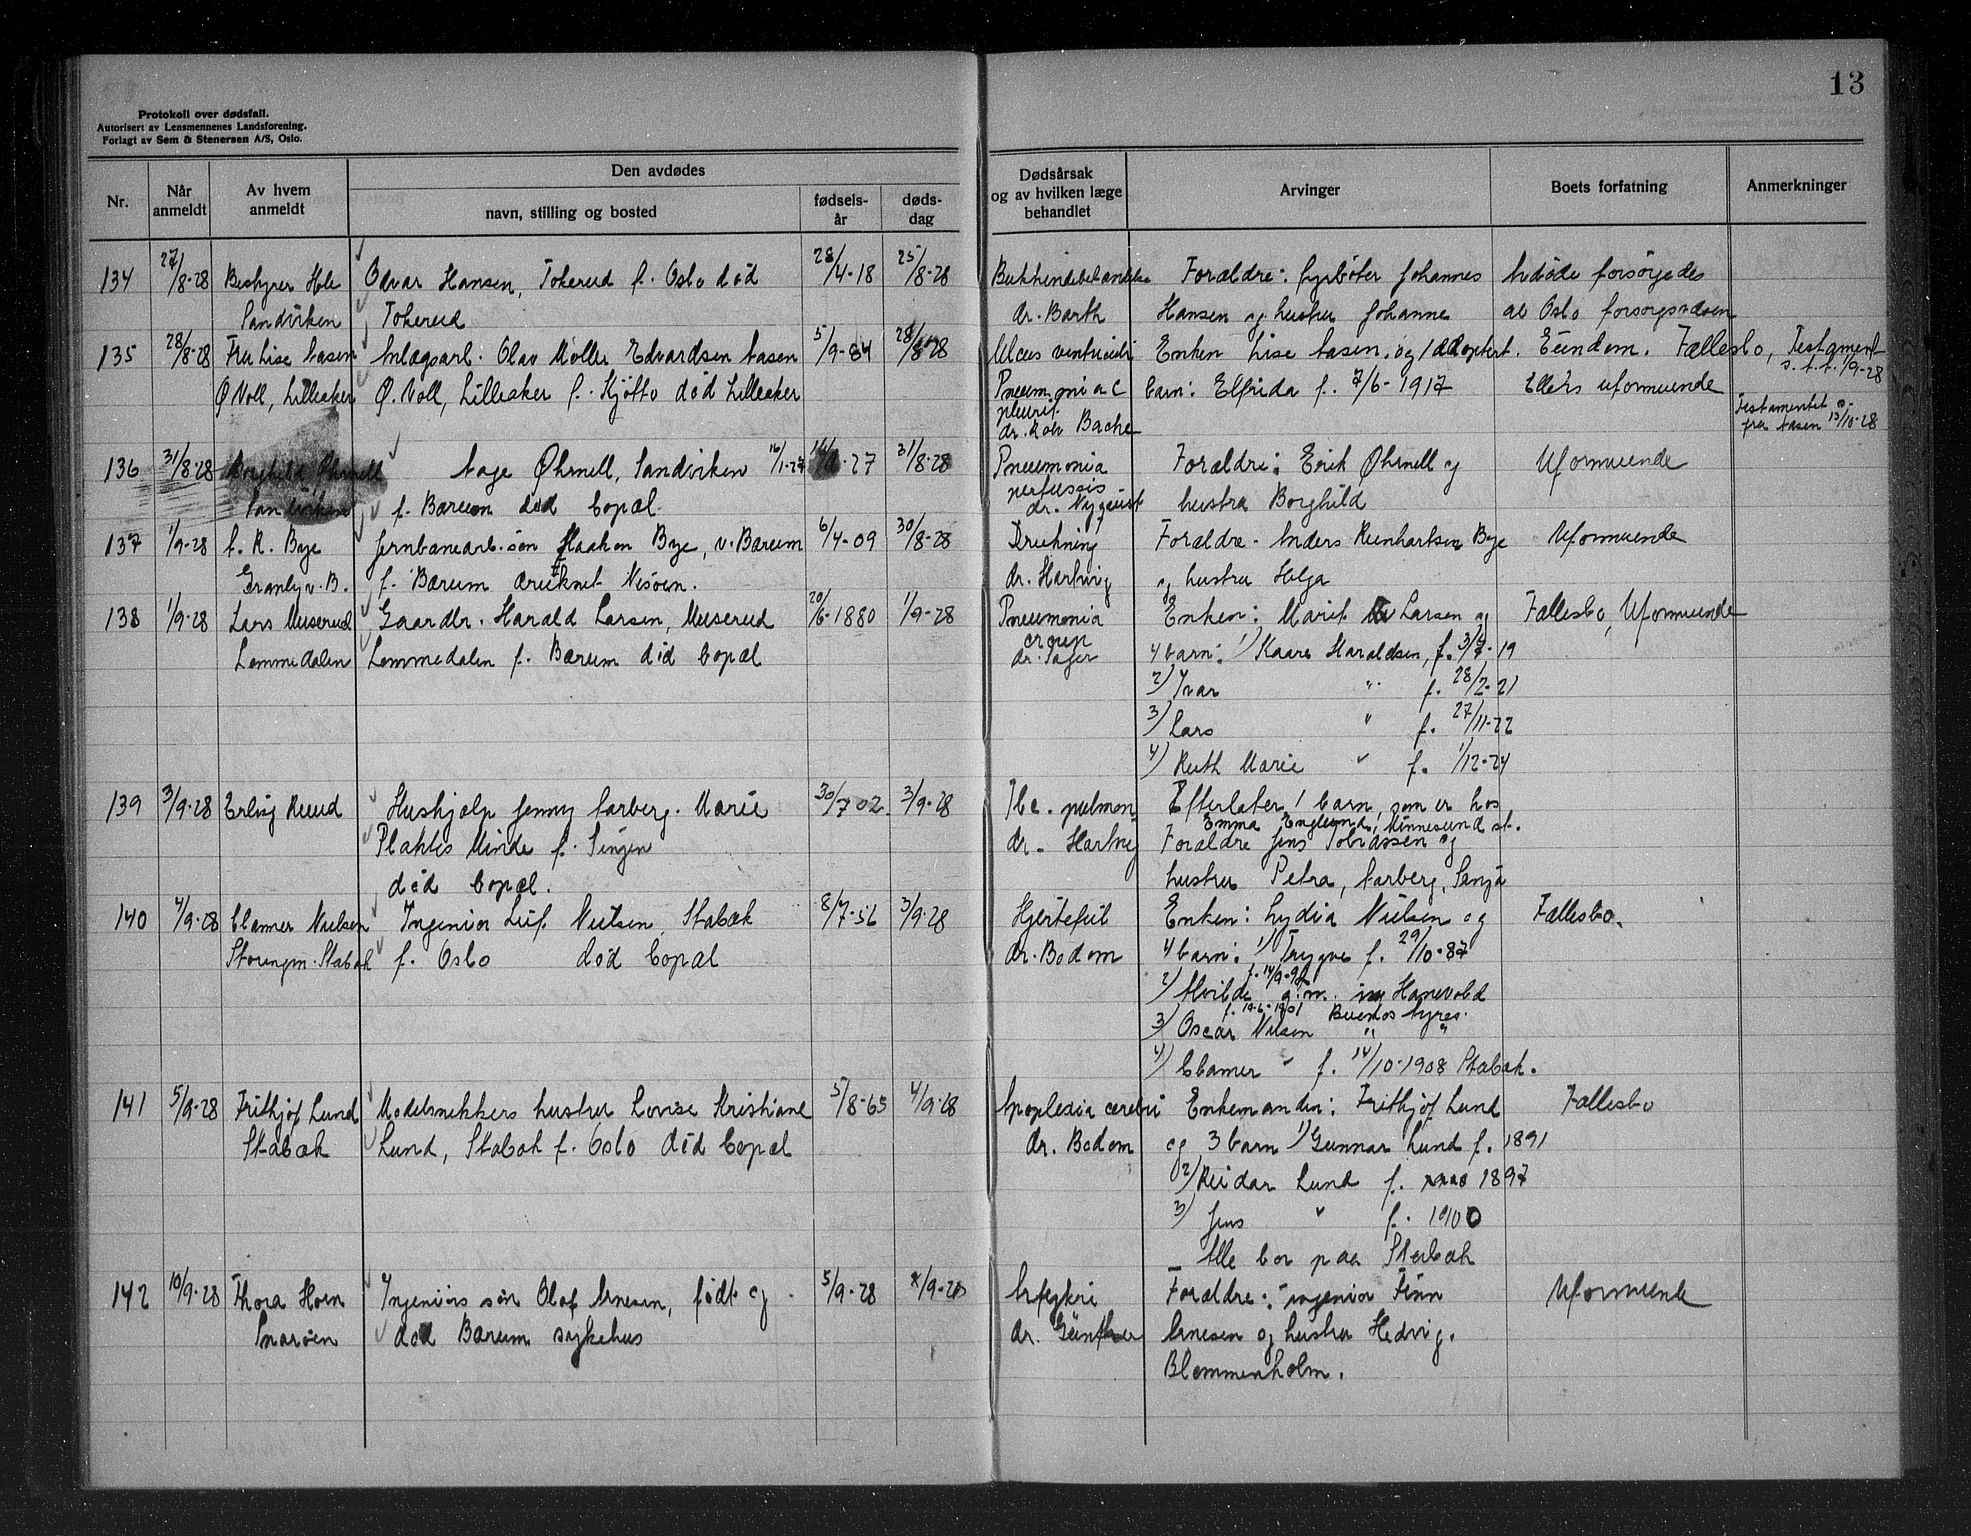 13
Protokoll over dødsfall.
Autorisert av Lensmennenes Landsforening.
Forlagt av Sem & Stenersen A/S, Oslo.
Nr.
Når anmeldt
Av hvem anmeldt
Den avdødes
navn, stilling og bosted
fødselsår
dødsdag
Dødsårsak og av hvilken læge behandlet
Arvinger
Boets forfatning
Anmerkninger
134 27/8-28 Bestyrer Hole Odvar Hansen, Tokerud f. Oslo død 28/4-18 25/8-28 Forældre: fyrbøter Johannes Avdøde forsørgedes
Sandviken Tokerud dr. Barth Hansen og hustru Johanne av Oslo forsorgsvæsen
135 28/8-28 Fru Lise Aasen Anlægsarb. Olav Møller Edvardsen Aasen 5/9-84 28/8-28 Ulcus ventriculi Enken Lise Aasen og 1 adoptert Eiendom. Fællesbo, Testament
s.t.t. 1/9-28
Ø. Voll, Lilleaker Ø. Voll, Lilleaker f. Kjøtto død Lilleaker Pneumonia c barn: Elfrida f. 7/6-1917 Ellers uformuende
pleurit. Testamentet
dr. Rolv Bache fru Aasen 13/10-28
136 31/8-28 Borghild Øhrnell Aage Øhrnell, Sandviken 16/1-27 27 31/8-28 Pneumonia Forældre: Erik Øhrnell og Uformuende
pertussis
Sandviken f. Bærum død Copæl. dr. Nyquist hustru Borghild
137 1/9-28 f. R. Bye Jernbanearb. søn Haakon Bye, v. Bærum 6/4-09 30/8-28 Drukning Forældre - Anders Reinhartsen Bye Uformuende
Granly v. B. f. Bærum druknet Nisøen. dr. Hartvig og hustru Helga
138 1/9-28 Lars Muserud Gaardbr. Harald Larsen, Muserud 20/6-1880 1/9-28 Pneumonia Enken: Marit Larsen og Fællesbo, Uformuende
croup
Lommedalen Lommedalen f. Bærum død Copæl dr. Sager 4 barn: 1) Kaare Haraldsen, f. 3/4-19
2) Ivar " f. 28/2-21
3) Lars " f. 27/11-22
4) Ruth Marie " f. 1/12-24
139 3/9-28 Erling Ruud Hushjælp Jenny Aarberg. Marie 30/7 02. 3/9-28 Tbc. pulmon Efterlater 1 barn, som er hos
Emma Englund, Minnesund st.
Plahtes Minde f. Singen dr. Hartvig Forældre Jens Tobiassen og
død Copæl. hustru Petra, Aarberg, Senja
140 4/9-28 Clamer Nielsen Ingeniør Leif Nielsen, Stabæk 8/7-56 3/9-28 Hjertefeil Enken: Lydia Nielsen og Fællesbo.
Storengvn. Stabæk f. Oslo død Copæl dr. Bodom 4 barn: 1) Trygve f. 29/10-87
2) Alvilde g.m. Hanevold
f. 19-6-1901 Buenos Ayres.
3) Oscar Nilsen " "
4) Clamer " f. 14/10-1908 Stabæk.
141 5/9-28 Frithjof Lund Modelsnekkers hustru Lovise Kristiane 5/8-65 4/9-28 Apoplexia cerebri Enkemanden: Frithjof Lund Fællesbo
Stabæk Lund, Stabæk f. Oslo død Copæl dr. Bodom og 3 barn 1) Gunnar Lund f. 1891
2) Reidar Lund f. 1897
3) Jens " f. 1900
Alle bor paa Stabæk
142 10/9-28 Thora Hoen Ingeniørs søn Olaf Arnesen, født og 5/9-28 /9-28 Asfyksi Forældre: ingeniør Finn Uformuende
Snarøen død Bærum sykehus dr. Günther Arnesen og hustru Hedvig.
Blommenholm.